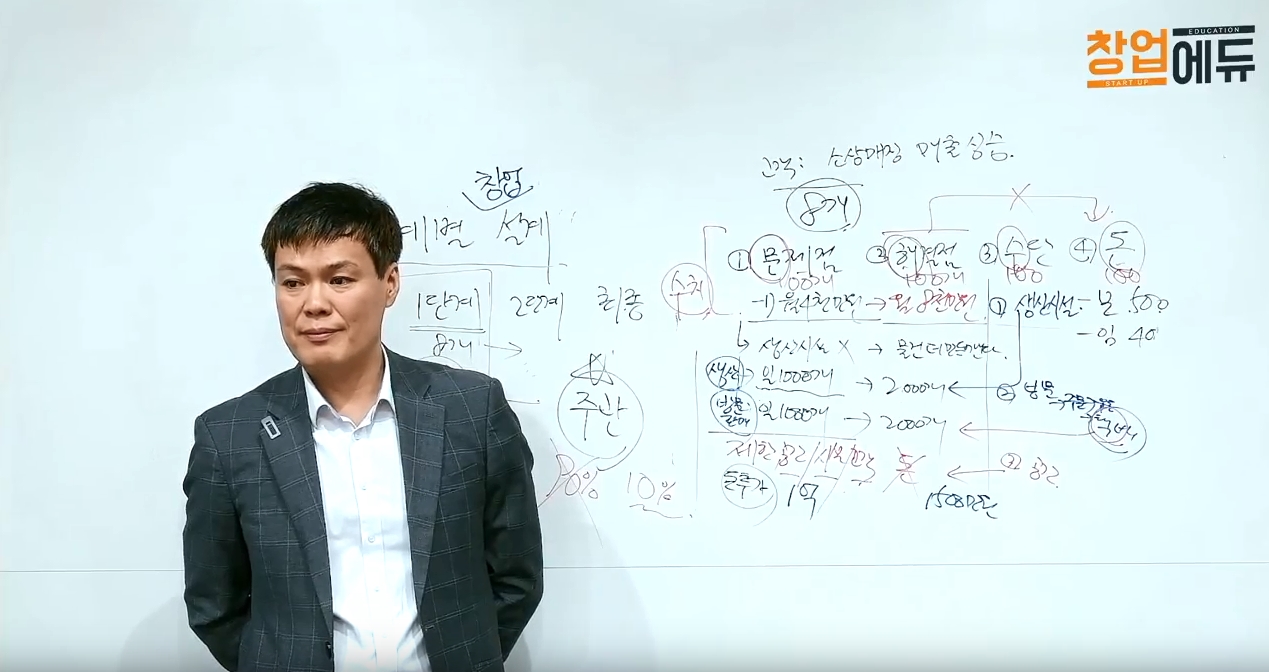 창업에듀
EDUCATION
START UP
고객: 신상매장 매출상승.
8개
창업
계별 설계
1단계 2단계 최종
8개 →
주간
90% 10%
수치
① 문제점 ② 해결점 ③ 수단 ④ 돈
100개 100개 100 100
월 4천만원 → 월 8천만원
① 생산시설 - 500
- 임 40
생산시설 X → 물건 더 만든다.
생산 → 일 1000개 → 2000개
② 방문
방문 일 1000개 → 2000개
돈
1억
1500만원